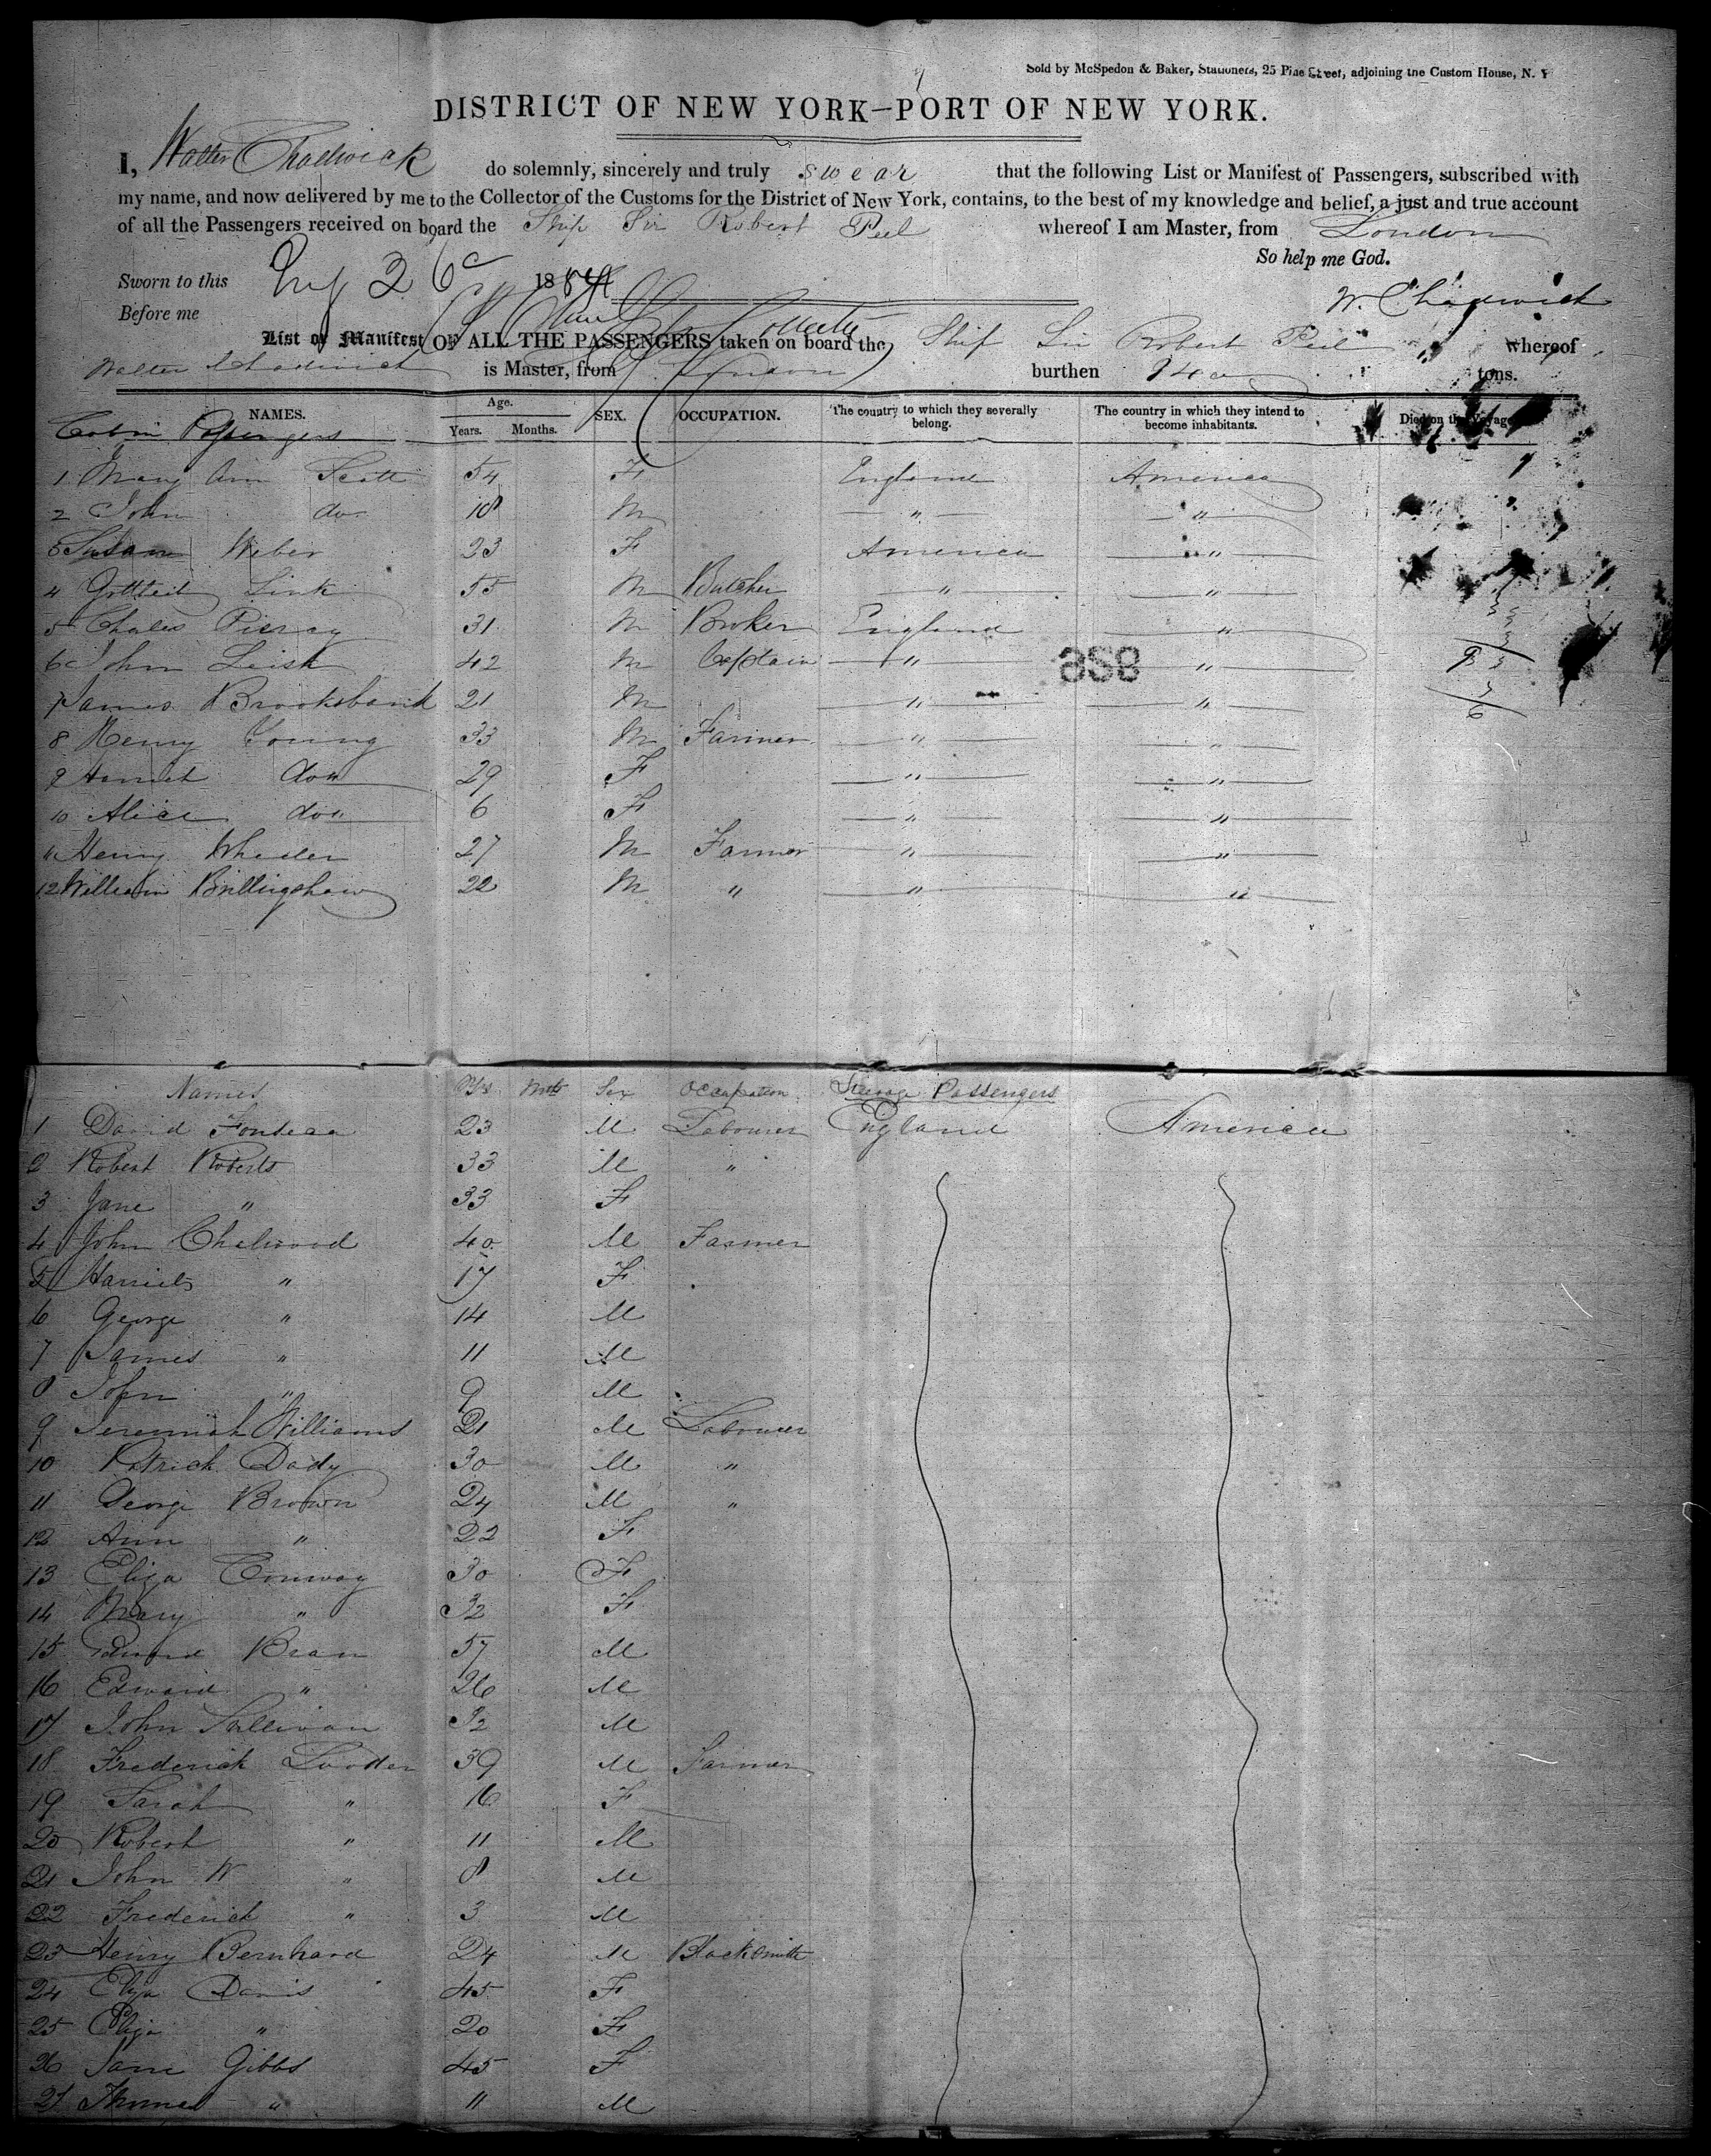 Sold by McSpedon & Baker, Stationers, 25 Pine Street, adjoining the Custom House, N. Y
DISTRICT OF NEW YORK—PORT OF NEW YORK.
I, Walter Chadwick do solemnly, sincerely and truly swear that the following List or Manifest of Passengers, subscribed with
my name, and now delivered by me to the Collector of the Customs for the District of New York, contains, to the best of my knowledge and belief, a just and true account
of all the Passengers received on board the Ship Sir Robert Peel whereof I am Master, from London
So help me God.
Sworn to this 26 1854
W. Chadwick
Before me
List or Manifest OF ALL THE PASSENGERS taken on board the Ship Sir Robert Peel whereof
Walter Chadwick is Master, from London burthen tons.
NAMES. Age. Years. Months. SEX. OCCUPATION. The country to which they severally belong. The country in which they intend to become inhabitants. Died on the Voyage
Cabin Passengers
1 Mary Ann Scott 54 F England America
2 John do 18 M " "
3 Susan Weber 23 F America "
4 Gottleib Link 55 M Butcher " "
5 Charles Piercy 31 M Broker England "
6 John Leisk 42 M Captain " "
898
7 James Brooksbank 21 M " "
8 Henry Young 33 M Farmer " "
9 Harriet do 29 F " "
10 Alice do 6 F " "
11 Henry Wheeler 27 M Farmer " "
12 William Brillingshaw 22 M " " "
Names Yrs Mths Sex Occupation Steerage Passengers
1 David Fonseca 23 M Labourer England America
2 Robert Roberts 33 M "
3 Jane " 33 F
4 John Chelwood 40 M Farmer
5 Harriet " 17 F
6 George " 14 M
7 James " 11 M
8 John " 9 M
9 Jeremiah Williams 21 M Labourer
10 Patrick Dady 30 M "
11 George Brown 24 M "
12 Ann " 22 F
13 Eliza Conway 30 F
14 Mary " 32 F
15 Edward Bran 57 M
16 Edward " 26 M
17 John Sullivan 32 M
18 Frederick Looder 39 M Farmer
19 Sarah " 16 F
20 Robert " 11 M
21 John W " 8 M
22 Frederick " 3 M
23 Henry Bernhard 24 M Blacksmith
24 Eliza Davis 45 F
25 Eliza " 20 F
26 Jane Gibbs 45 F
27 Thomas " 11 M